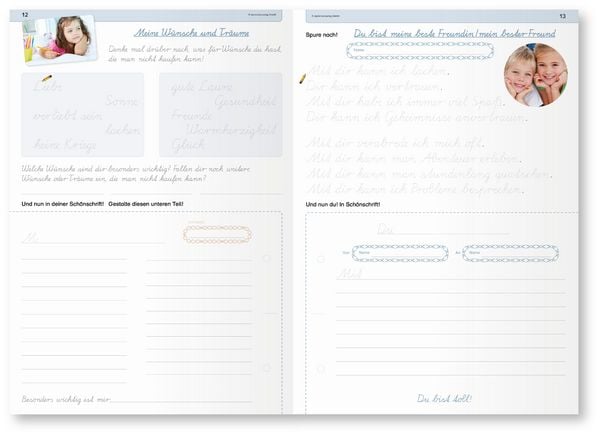 12
Meine Wünsche und Träume
Denke mal drüber nach, was für Wünsche du hast,
die man nicht kaufen kann!
Liebe
Sonne
verliebt sein
lachen
keine Kriege
gute Laune
Gesundheit
Freunde
Warmherzigkeit
Glück
Welche Wünsche sind dir besonders wichtig? Fallen dir noch weitere
Wünsche oder Träume ein, die man nicht kaufen kann?
Und nun in deiner Schönschrift! Gestalte diesen unteren Teil!
M
Besonders wichtig ist mir
13
Spure nach!
Du bist meine beste Freundin/mein bester Freund
Name
Mit dir kann ich lachen.
Dir kann ich vertrauen.
Mit dir habe ich immer viel Spaß.
Dir kann ich Geheimnisse anvertrauen.
Mit dir verabrede ich mich oft.
Mit dir kann man Abenteuer erleben.
Mit dir kann man stundenlang quatschen.
Mit dir kann ich Probleme besprechen.
Und nun du! In Schönschrift!
Du
Von Name
An Name
Mit
Du bist toll!